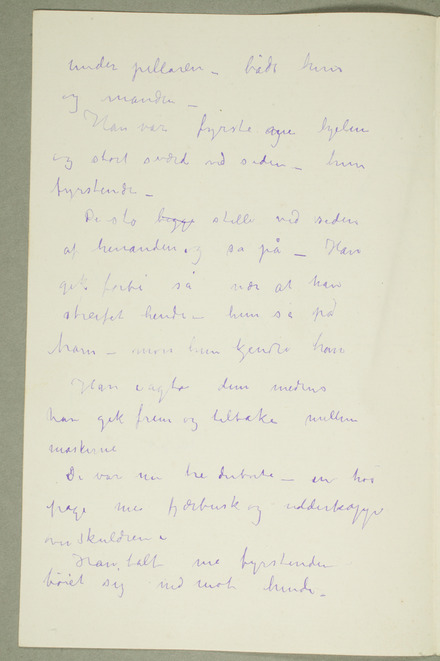 under pillaren – både hun
og manden –
Han var fyrste hjelm
og stort sværd ved siden – hun
fyrstinde –
De sto begge stille ved siden
af henanden og så på – Han
gik forbi så nær at han
streifet hende – hun så på
ham – mon hun kjendte ham
Han vagta dem medens
han gik frem og tilbake mellem
maskerne
De var nu tre – en höi
page med fjærbusk og ridderkappe
over skuldrene
Han, talt me fyrstinden
böiet sig ned mot hende –